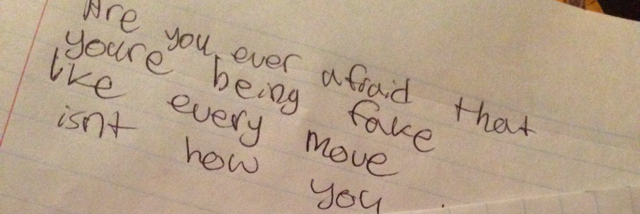 Are you ever afraid that
youre being fake
like every move
isnt how you